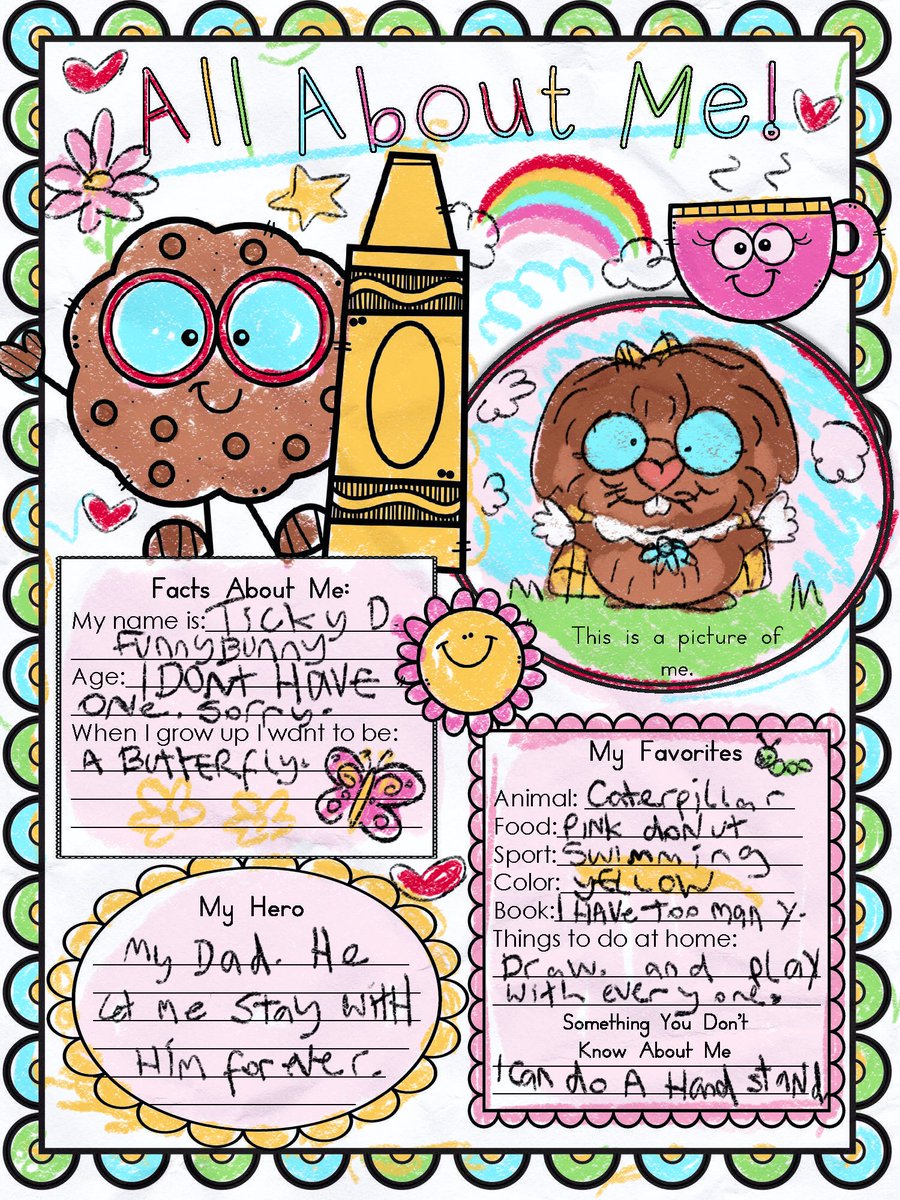 All About Me!
Facts About Me:
My name is: Ticky D.
Funny Bunny
Age: I DONt HAVE
ONE. Sorry.
When I grow up I want to be:
A BUTTERfly.
This is a picture of
me.
My Favorites
Animal: Caterpillar
Food: PINK donut
Sport: Swimming
Color: yELLOW
Book: I HAVE Too many.
Things to do at home:
Draw. and play
with every one.
Something You Don't
Know About Me
I Can do A Hand stand
My Hero
My Dad. He
Let me Stay WitH
Him forever.